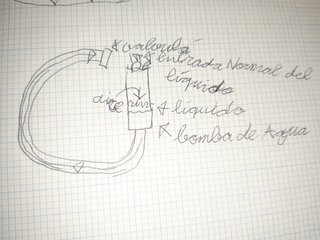 valvula
entrada Normal del
líquido
aire
liquido
bomba de Agua